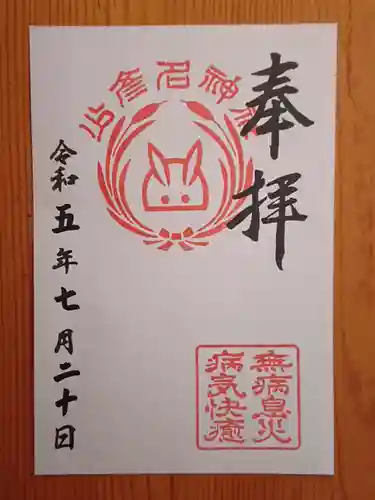 奉拝
少彦名神社
無病息災
病気快癒
令和五年七月二十日